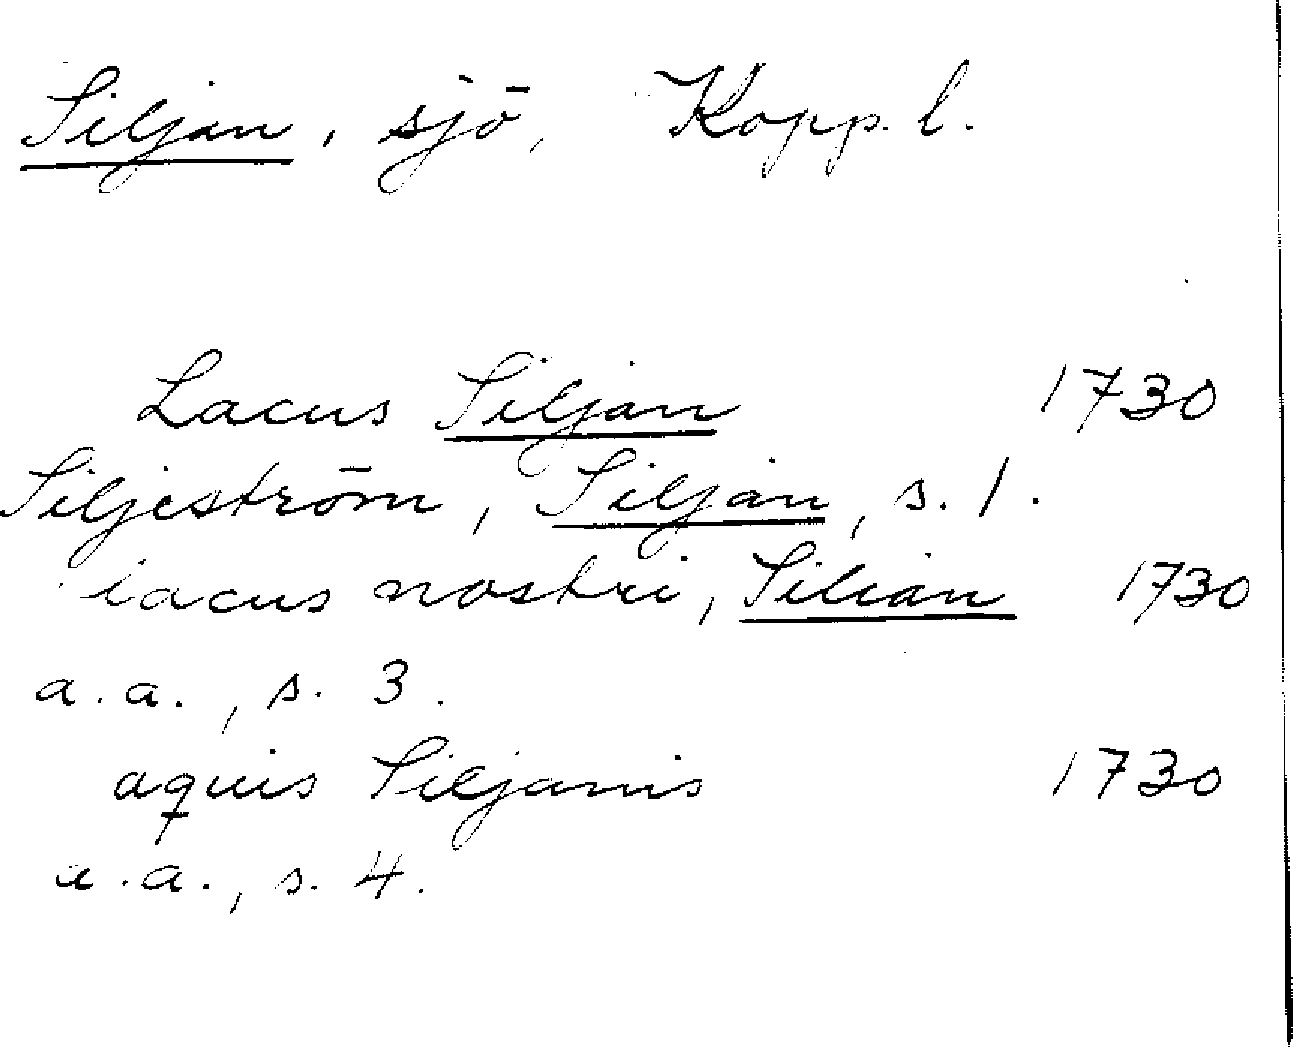 Siljan, sjö, Kopp. l.
Lacus Siljan 1730
Siljeström, Siljan, s. 1.
lacus nostri, Silian 1730
a.a., s. 3.
aquis Siljanis 1730
a.a., s. 4.